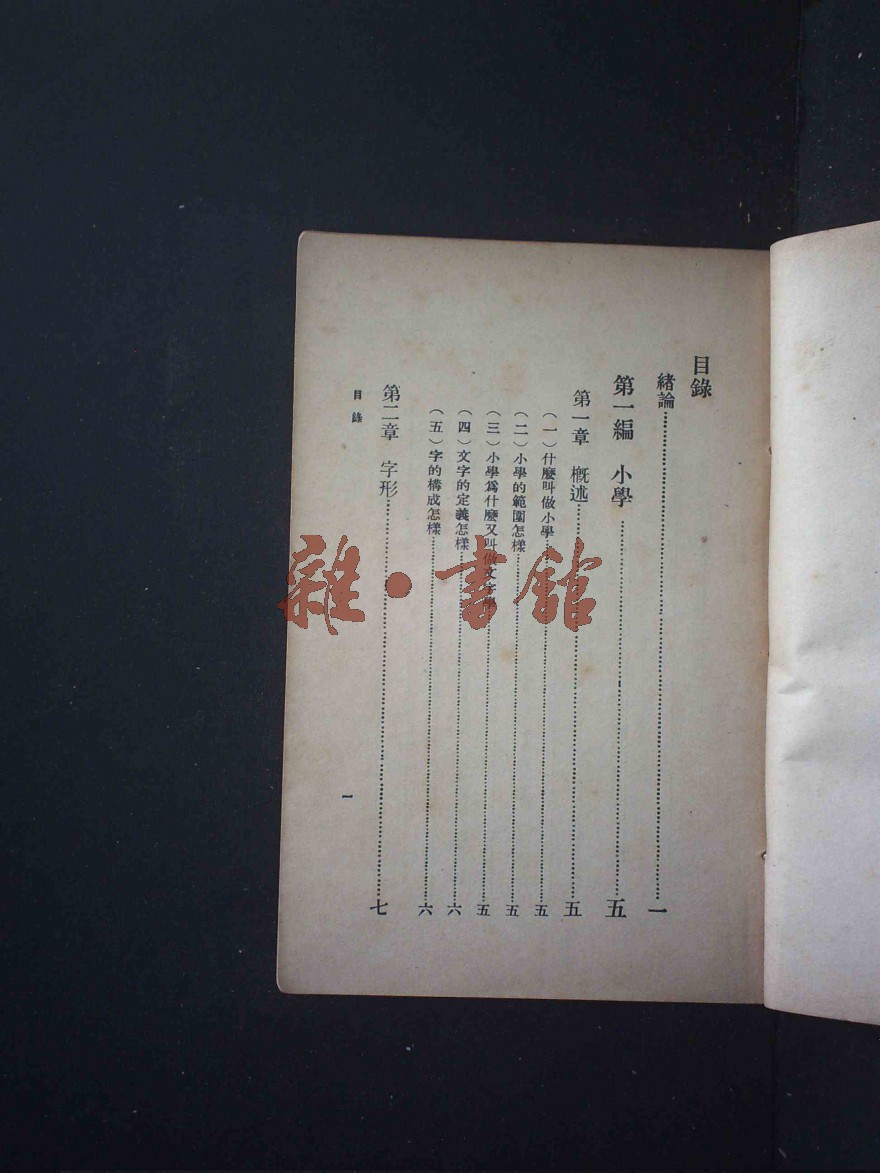 目錄
緒論…一
第一編 小學…五
第一章 概述…五
(一)什麼叫做小學…五
(二)小學的範圍怎樣…五
(三)小學爲什麼又叫做文字學…五
(四)文字的定義怎樣…六
(五)字的構成怎樣…六
第二章 字形…七
目錄
一
雜·書館